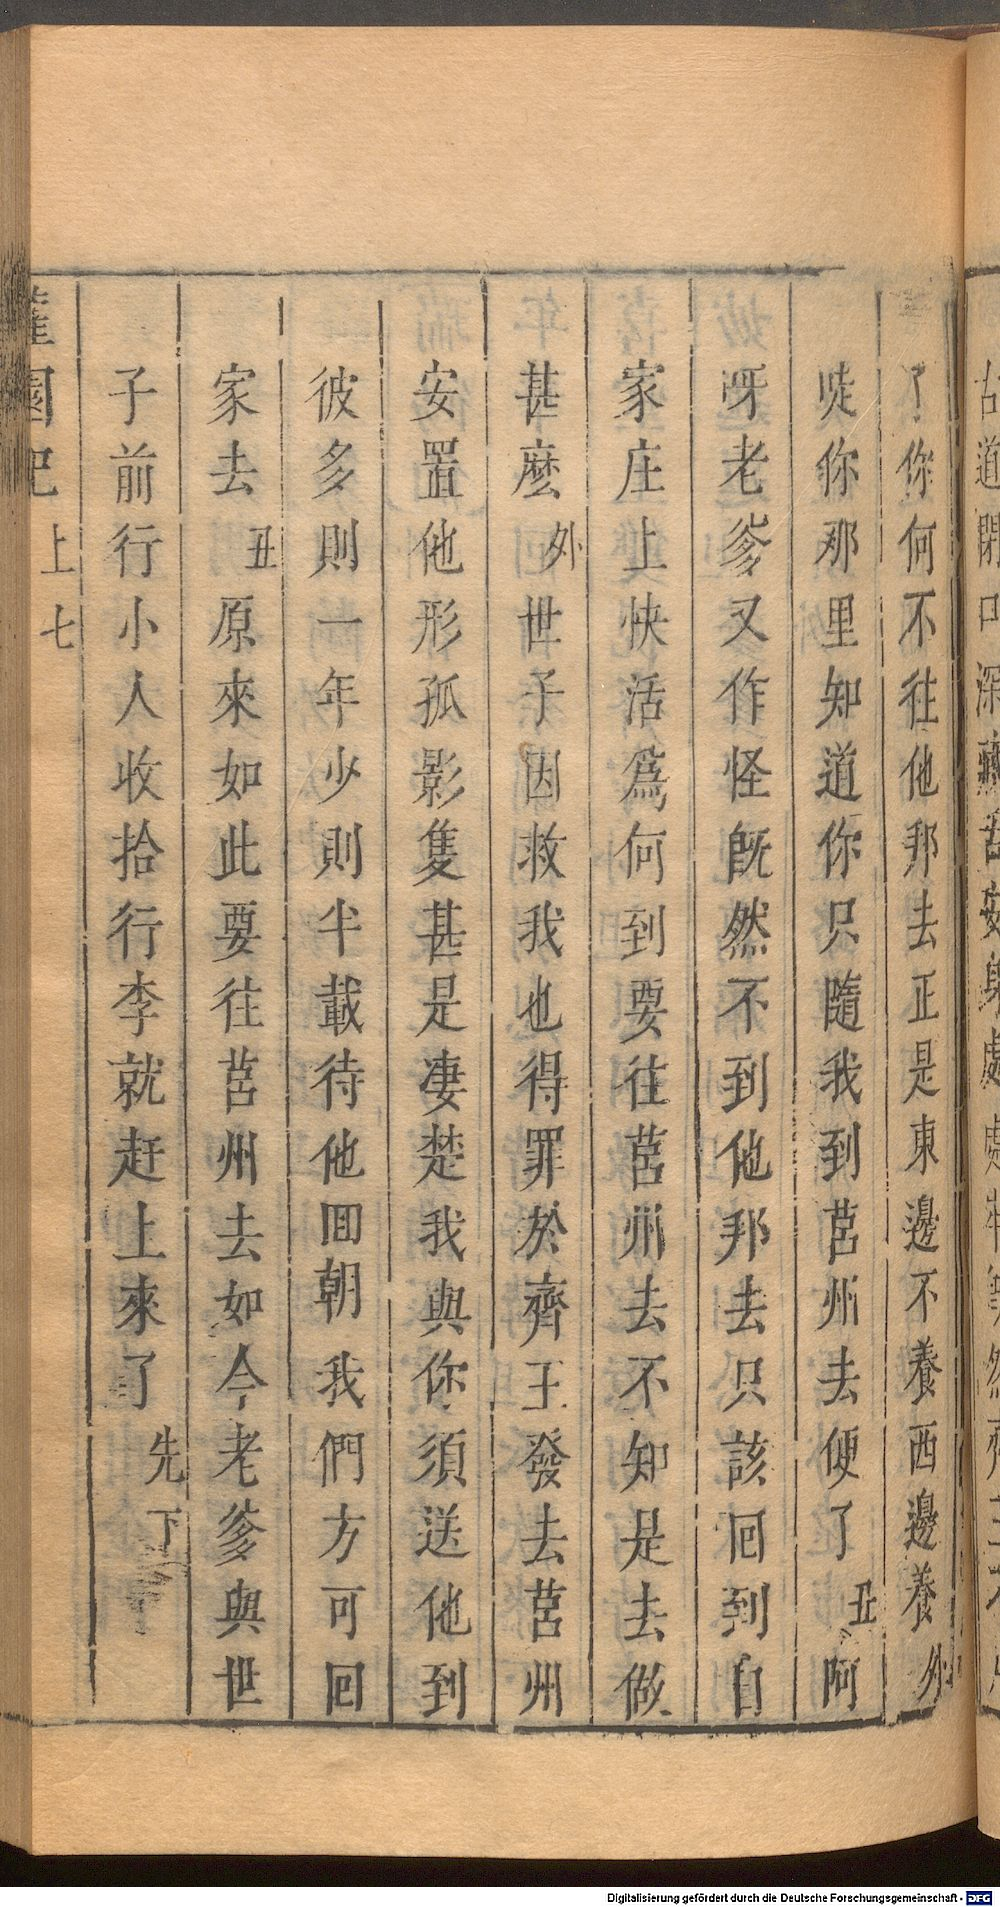 了你何不往他邦去正是東邊不養西邊養外
唗你那里知道你只隨我到莒州去便了丑阿
呀老爹又作怪旣然不到他邦去只該回到自
家庄上快活爲何到要往莒州去不知是去做
甚麼外世子因救我也得罪於齊王發去莒州
安置他形孤影隻甚是凄楚我與你須送他到
彼多則一年少則半載待他囬朝我們方可回
家去丑原來如此要往莒州去如今老爹與世
子前行小人收拾行李就赶上來了先下
園記 上 七
Digitalisierung gefördert durch die Deutsche Forschungsgemeinschaft - DFG